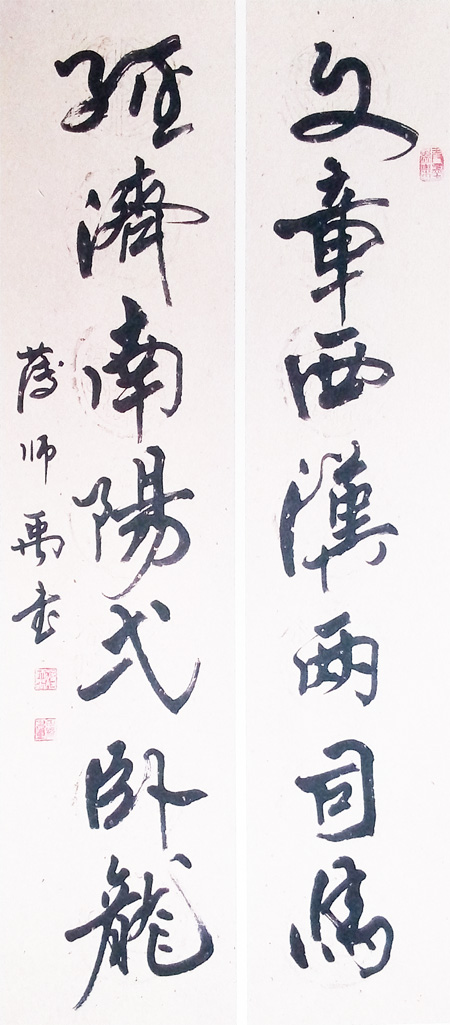 文章西漢兩司馬
經濟南陽弌臥龍
薄師禹書